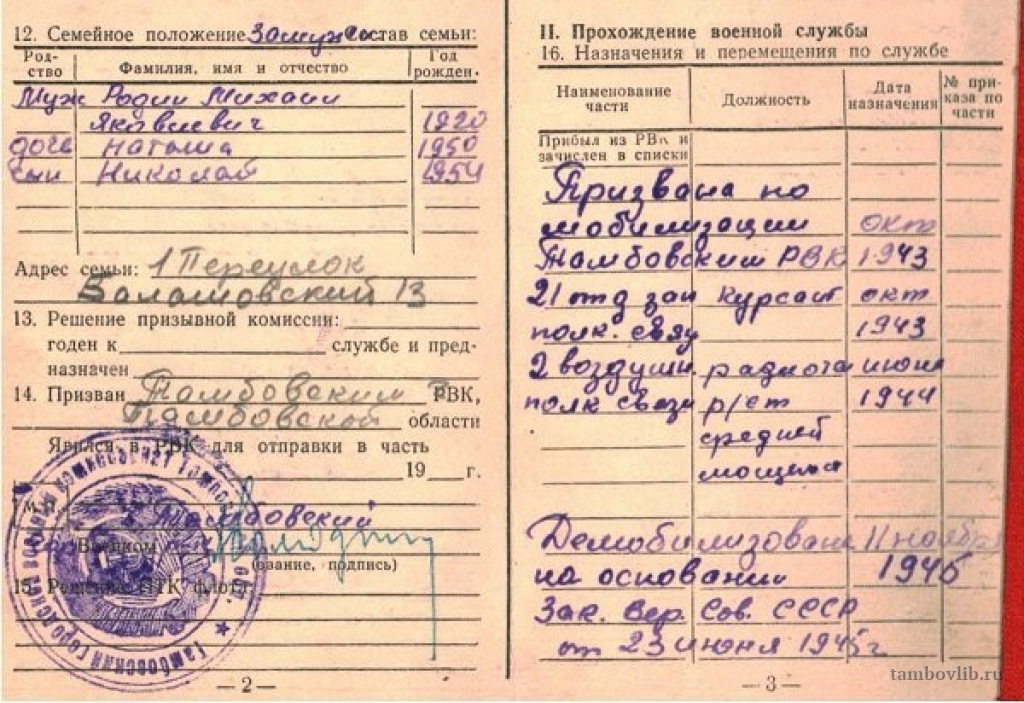 12. Семейное положение Замужем Состав семьи:
Род-
ство
Фамилия, имя и отчество
Год
рожден.
Муж Родин Михаил
Яковлевич 1920
дочь Наташа 1950
сын Николай 1954
Адрес семьи: 1 Переулок
Балашовский 13
13. Решение призывной комиссии:
годен к службе и пред-
назначен
14. Призван Тамбовским РВК,
Тамбовской области
Явился в РВК для отправки в часть
19 г.
М. П.
Тамбовский
Военком
(звание, подпись)
15. Решение флота
— 2 —
II. Прохождение военной службы
16. Назначения и перемещения по службе
Наименование
части
Должность
Дата
назначения
№ при-
каза по
части
Прибыл из РВК и
зачислен в списки
Призвана по
мобилизации окт
Тамбовским РВК 1943
21 отд зап курсант окт
полк. связи 1943
2 воздушн. радиотел июнь
полк связи р/ст 1944
средней
мощности
Демобилизована 11 ноября
на основании 1945
Зак. Вер. Сов. СССР
от 23 июня 1945г
— 3 —
tambovlib.ru